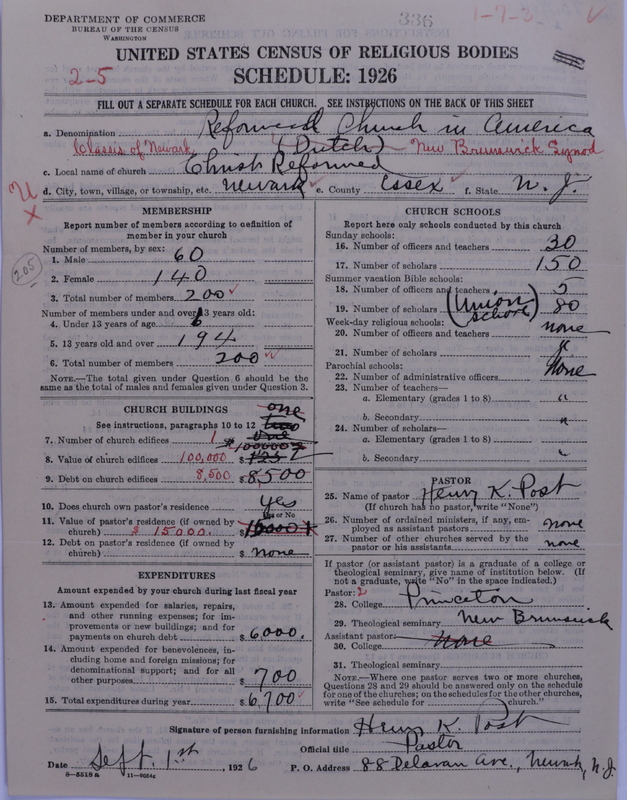 DEPARTMENT OF COMMERCE
BUREAU OF THE CENSUS
WASHINGTON
336
1-7-3
UNITED STATES CENSUS OF RELIGIOUS BODIES
2-5
SCHEDULE: 1926
FILL OUT A SEPARATE SCHEDULE FOR EACH CHURCH. SEE INSTRUCTIONS ON THE BACK OF THIS SHEET
a. Denomination Reformed Church in America
Classis of Newark (Dutch) New Brunswick Synod
c. Local name of church Christ Reformed
d. City, town, village, or township, etc. Newark e. County Essex f. State N. J.
MEMBERSHIP
Report number of members according to definition of
member in your church
Number of members, by sex:
1. Male 60
205
2. Female 140
3. Total number of members 200
Number of members under and over 13 years old:
4. Under 13 years of age 6
5. 13 years old and over 194
6. Total number of members 200
NOTE.—The total given under Question 6 should be the
same as the total of males and females given under Question 3.
CHURCH BUILDINGS one
See instructions, paragraphs 10 to 12
7. Number of church edifices 1
8. Value of church edifices 100,000 $
9. Debt on church edifices 8,500 $ 8500
10. Does church own pastor's residence yes
Yes or No
11. Value of pastor's residence (if owned by
church) $ 15000.
12. Debt on pastor's residence (if owned by
church) $ none
EXPENDITURES
Amount expended by your church during last fiscal year
13. Amount expended for salaries, repairs,
and other running expenses; for im-
provements or new buildings; and for
payments on church debt $ 6000.
14. Amount expended for benevolences, in-
cluding home and foreign missions; for
denominational support; and for all
other purposes $ 700
15. Total expenditures during year $ 6,700
CHURCH SCHOOLS
Report here only schools conducted by this church
Sunday schools:
16. Number of officers and teachers 30
17. Number of scholars 150
Summer vacation Bible schools:
18. Number of officers and teachers 5
19. Number of scholars (Union school) 80
Week-day religious schools:
20. Number of officers and teachers none
21. Number of scholars "
Parochial schools:
22. Number of administrative officers None
23. Number of teachers—
a. Elementary (grades 1 to 8) "
b. Secondary "
24. Number of scholars—
a. Elementary (grades 1 to 8)
b. Secondary "
PASTOR
25. Name of pastor Henry K. Post
(If church has no pastor, write "None")
26. Number of ordained ministers, if any, em-
ployed as assistant pastors none
27. Number of other churches served by the
pastor or his assistants none
If pastor (or assistant pastor) is a graduate of a college or
theological seminary, give name of institution below. (If
not a graduate, write "No" in the space indicated.)
Pastor: 2
28. College Princeton
29. Theological seminary New Brunswick
Assistant pastor:
30. College none
31. Theological seminary
NOTE.—Where one pastor serves two or more churches,
Questions 28 and 29 should be answered only on the schedule
for one of the churches; on the schedules for the other churches,
write "See schedule for church."
Signature of person furnishing information Henry K. Post
Official title Pastor
Date Sept. 1st, 1926 P. O. Address 88 Delavan Ave., Newark, N.J.
8-5518 a 11-9054